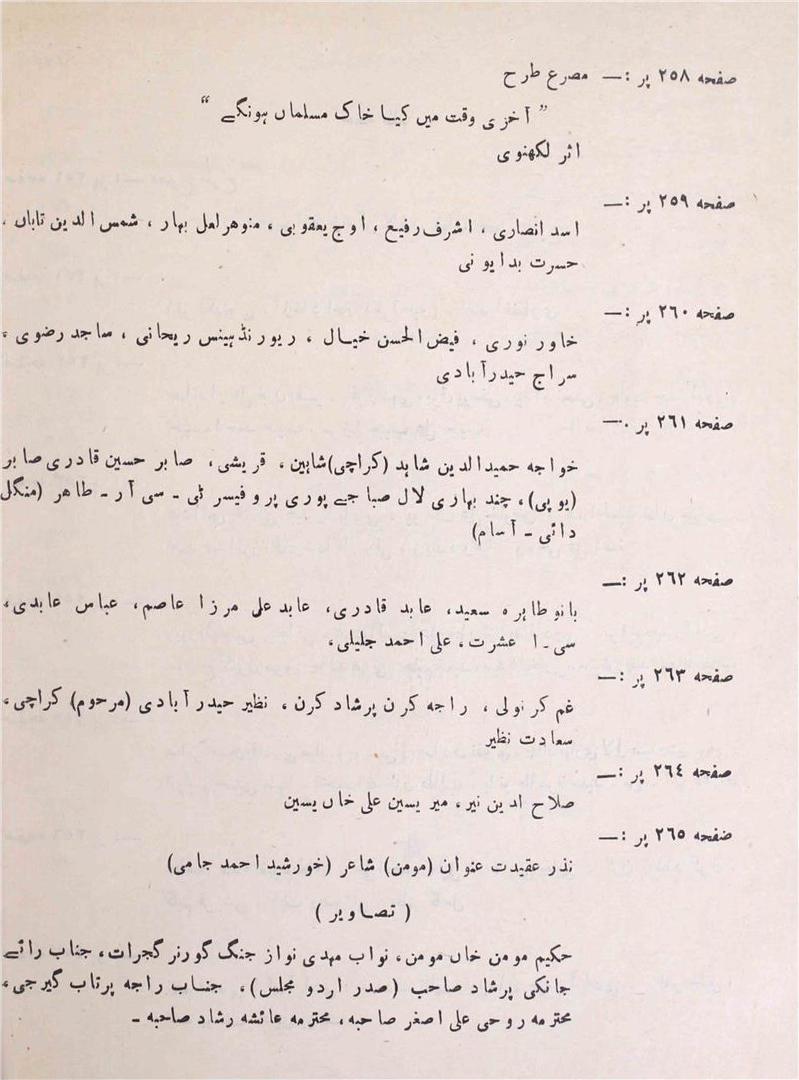 صفحہ ٢٥٨ پر :— مصرع طرح
” آخری وقت میں کیا خاک مسلماں ہونگے “
اثر لکھنوی
صفحہ ٢٥٩ پر :—
اسد انصاری ، اشرف رفیع ، اوج یعقوبی ، منوھر لعل بہار ، شمس الدین تاباں ،
حسرت بدایونی
صفحہ ٢٦٠ پر :—
خاور نوری ، فیض الحسن خیال ، ریورنڈ ہینس ریحانی ، ساجد رضوی ،
سراج حیدرآبادی
صفحہ ٢٦١ پر .—
خواجہ حمید الدین شاہد (کراچی) شاہین ، قریشی ، صابر حسین قادری صابر
(یو پی) ، چند بہاری لال صبا جے پوری پروفیسر ٹی ـ سی آر ـ طاھر (منگل
دائی ـ آسام)
صفحہ ٢٦٢ پر :—
بانو طاہرہ سعید، عابد قادری، عابد علی مرزا عاصم، عباس عابدی،
سی ـ ا عشرت ، علی احمد جلیلی،
صفحہ ٢٦٣ پر :—
غم کرنولی ، راجہ کرن پرشاد کرن ، نظیر حیدر آبادی (مرحوم) کراچی،
سعادت نظیر
صفحہ ٢٦٤ پر :—
صلاح الدین نیر ، میر یسین علی خاں یسین
ضفحہ ٢٦٥ پر :—
نذر عقیدت عنوان (مومن) شاعر (خورشید احمد جامی)
( تصاویر )
حکیم مومن خاں مومن، نواب مہدی نواز جنگ گورنر گجرات، جناب رائے
جانکی پرشاد صاحب (صدر اردو مجلس) ، جناب راجہ پرتاب گیرجی،
محترمہ روحی علی اصغر صاحبہ، محترمہ عائشہ رشاد صاحبہ ـ